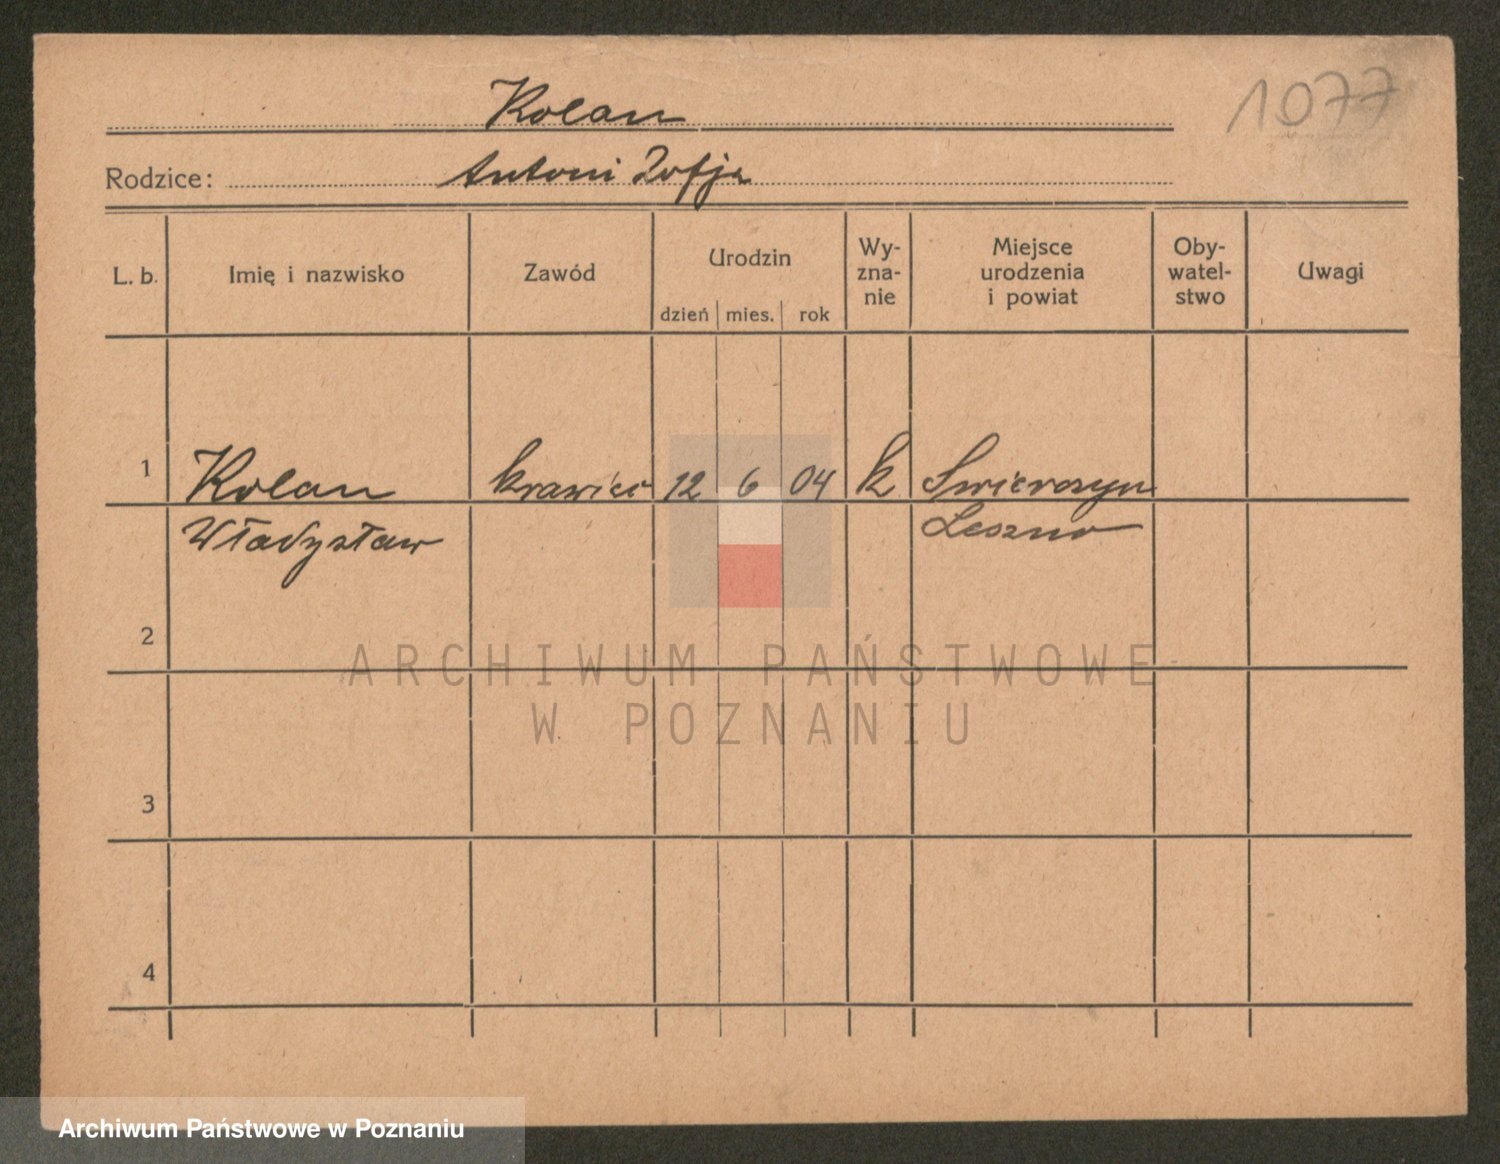 Kolan
1077
Rodzice: Antoni Zofja
L. b. Imię i nazwisko Zawód Urodzin Wy-zna-nie Miejsce urodzenia i powiat Oby-watel-stwo Uwagi
dzień mies. rok
1 Kolan krawiec 12 6 04 k Swierczyn
Władysław Leszno
2
ARCHIWUM PAŃSTWOWE
W POZNANIU
3
4
Archiwum Państwowe w Poznaniu